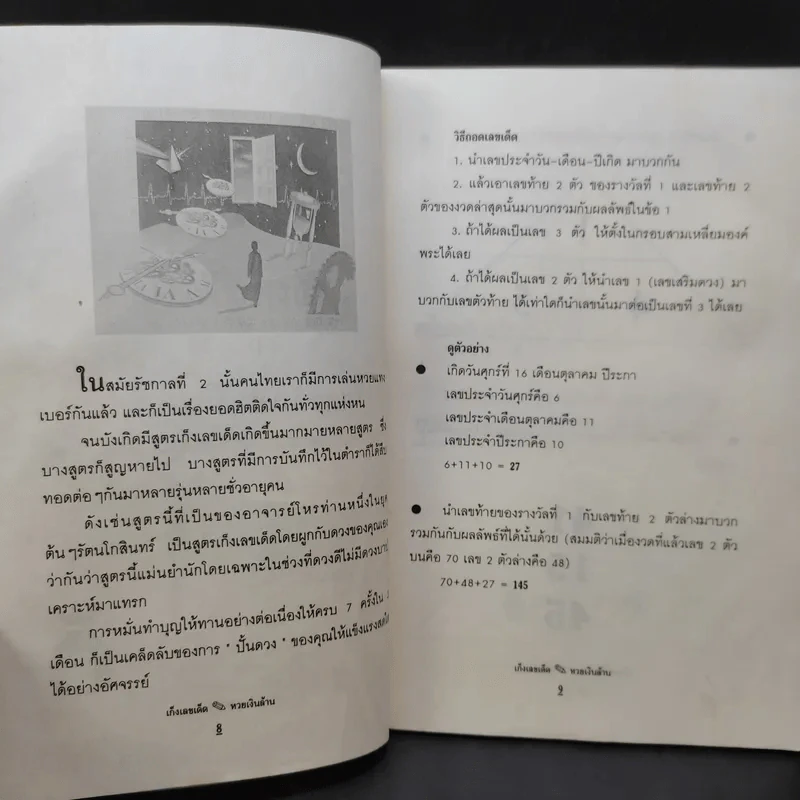 ในสมัยรัชกาลที่ 2 นั้นคนไทยเราก็มีการเล่นหวยแทง
เบอร์กันแล้ว และก็เป็นเรื่องยอดฮิตติดใจกันทั่วทุกแห่งหน
จนบังเกิดมีสูตรเก็งเลขเด็ดเกิดขึ้นมากมายหลายสูตร ซึ่ง
บางสูตรก็สูญหายไป บางสูตรที่มีการบันทึกไว้ในตำราก็ได้สืบ
ทอดต่อๆกันมาหลายรุ่นหลายชั่วอายุคน
ดังเช่นสูตรนี้ที่เป็นของอาจารย์โหรท่านหนึ่งในยุค
ต้นๆรัตนโกสินทร์ เป็นสูตรเก็งเลขเด็ดโดยผูกกับดวงของคุณเอง
ว่ากันว่าสูตรนี้แม่นยำนักโดยเฉพาะในช่วงที่ดวงดีไม่มีดวงบาป
เคราะห์มาแทรก
การหมั่นทำบุญให้ทานอย่างต่อเนื่องให้ครบ 7 ครั้งใน
เดือน ก็เป็นเคล็ดลับของการ " ปั้นดวง " ของคุณให้แข็งแรงสดใส
ได้อย่างอัศจรรย์
เก็งเลขเด็ด หวยเงินล้าน
8
วิธีถอดเลขเด็ด
1. นำเลขประจำวัน-เดือน-ปีเกิด มาบวกกัน
2. แล้วเอาเลขท้าย 2 ตัว ของรางวัลที่ 1 และเลขท้าย 2
ตัวของงวดล่าสุดนั้นมาบวกรวมกับผลลัพธ์ในข้อ 1
3. ถ้าได้ผลเป็นเลข 3 ตัว ให้ตั้งในกรอบสามเหลี่ยมองค์
พระได้เลย
4. ถ้าได้ผลเป็นเลข 2 ตัว ให้นำเลข 1 (เลขเสริมดวง) มา
บวกกับเลขตัวท้าย ได้เท่าใดก็นำเลขนั้นมาต่อเป็นเลขที่ 3 ได้เลย
ดูตัวอย่าง
● เกิดวันศุกร์ที่ 16 เดือนตุลาคม ปีระกา
เลขประจำวันศุกร์คือ 6
เลขประจำเดือนตุลาคมคือ 11
เลขประจำปีระกาคือ 10
6+11+10 = 27
● นำเลขท้ายของรางวัลที่ 1 กับเลขท้าย 2 ตัวล่างมาบวก
รวมกันกับผลลัพธ์ที่ได้นั้นด้วย (สมมติว่าเมื่องวดที่แล้วเลข 2 ตัว
บนคือ 70 เลข 2 ตัวล่างคือ 48)
70+48+27 = 145
เก็งเลขเด็ด หวยเงินล้าน
9